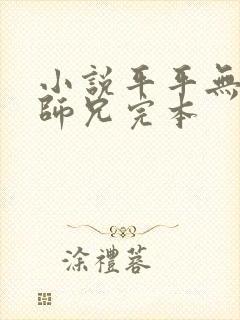 小說平平無
師兄完本
涂禮蓉